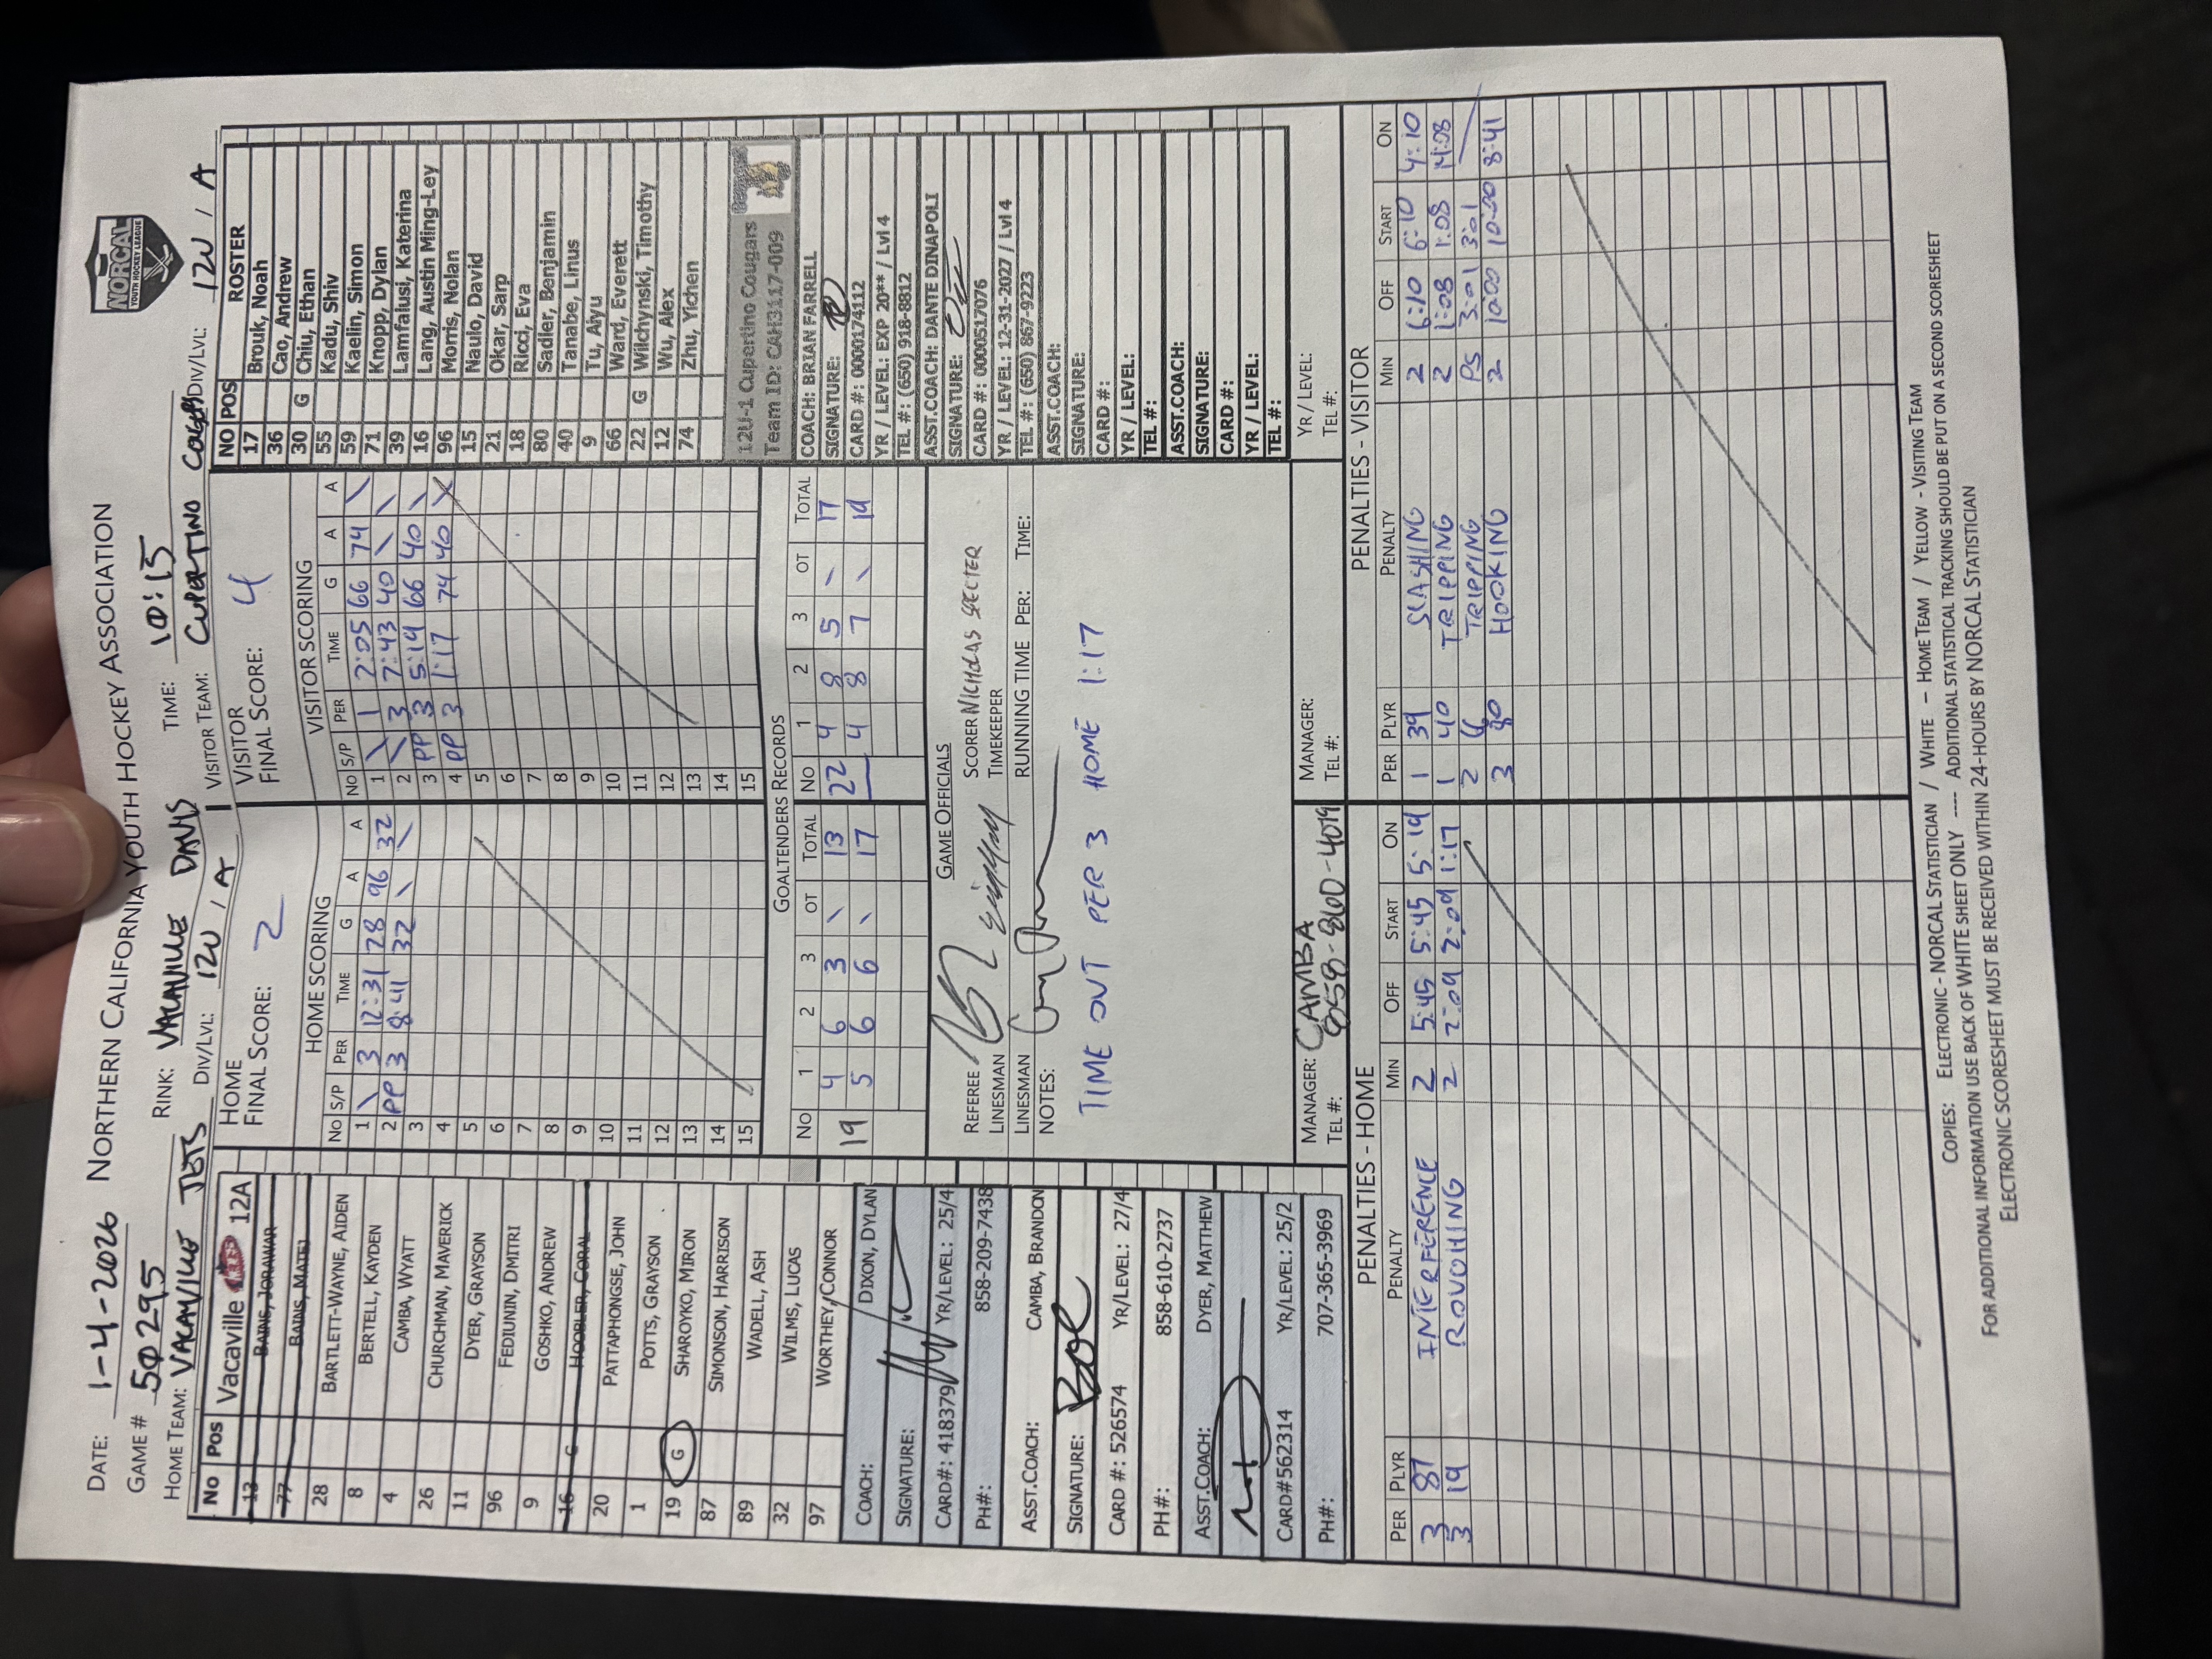 DATE: 1-4-2026 NORTHERN CALIFORNIA YOUTH HOCKEY ASSOCIATION
NORCAL
YOUTH HOCKEY LEAGUE
GAME # 50295 RINK: VACAVILLE TIME: 10:15
HOME TEAM: VACAVILLE JETS DIV/LVL: 12U / A VISITOR TEAM: CUPERTINO DIV/LVL: 12U / A
No Pos Vacaville JETS 12A
13 BAINS, JORAWAR
77 BAINS, MATEJ
28 BARTLETT-WAYNE, AIDEN
8 BERTELL, KAYDEN
4 CAMBA, WYATT
26 CHURCHMAN, MAVERICK
11 DYER, GRAYSON
96 FEDIUNIN, DMITRI
9 GOSHKO, ANDREW
16 G HOOBLER, CORAL
20 PATTAPHONGSE, JOHN
1 POTTS, GRAYSON
19 G SHAROYKO, MIRON
87 SIMONSON, HARRISON
89 WADELL, ASH
32 WILMS, LUCAS
97 WORTHEY, CONNOR
COACH: DIXON, DYLAN
SIGNATURE:
CARD#: 418379 YR/LEVEL: 25/4
PH#: 858-209-7438
ASST.COACH: CAMBA, BRANDON
SIGNATURE:
CARD #: 526574 YR/LEVEL: 27/4
PH#: 858-610-2737
ASST.COACH: DYER, MATTHEW
CARD#562314 YR/LEVEL: 25/2
PH#: 707-365-3969
HOME
FINAL SCORE: 2
HOME SCORING
NO S/P PER TIME G A A
1 \ 3 12:31 28 96 32
2 PP 3 8:41 32 \ \
3
4
5
6
7
8
9
10
11
12
13
14
15
VISITOR
FINAL SCORE: 4
VISITOR SCORING
NO S/P PER TIME G A A
1 \ 1 2:05 66 74 \
2 \ 3 7:43 40 \ \
3 PP 3 5:19 66 40 \
4 PP 3 1:17 74 40 \
5
6
7
8
9
10
11
12
13
14
15
GOALTENDERS RECORDS
NO 1 2 3 OT TOTAL NO 1 2 3 OT TOTAL
19 4 6 3 \ 13 22 4 8 5 \ 17
5 6 6 \ 17 4 8 7 \ 19
GAME OFFICIALS
REFEREE SCORER NICHOLAS SPECTER
LINESMAN TIMEKEEPER
LINESMAN RUNNING TIME PER: TIME:
NOTES:
TIME OUT PER 3 HOME 1:17
MANAGER: CAMBA MANAGER: YR / LEVEL:
TEL #: 858-860-4019 TEL #: TEL #:
NO POS ROSTER
17 Brouk, Noah
36 Cao, Andrew
30 G Chiu, Ethan
55 Kadu, Shiv
59 Kaelin, Simon
71 Knopp, Dylan
39 Lamfalusi, Katerina
16 Lang, Austin Ming-Ley
96 Morris, Nolan
15 Naulo, David
21 Okar, Sarp
18 Ricci, Eva
80 Sadler, Benjamin
40 Tanabe, Linus
9 Tu, Aiyu
66 Ward, Everett
22 G Wilchynski, Timothy
12 Wu, Alex
74 Zhu, Yichen
12U-1 Cupertino Cougars
Team ID: CAH3117-009
COACH: BRIAN FARRELL
SIGNATURE:
CARD #: 0000174112
YR / LEVEL: EXP 20** / Lvl 4
TEL #: (650) 918-8812
ASST.COACH: DANTE DINAPOLI
SIGNATURE:
CARD #: 0000517076
YR / LEVEL: 12-31-2027 / Lvl 4
TEL #: (650) 867-9223
ASST.COACH:
SIGNATURE:
CARD #:
YR / LEVEL:
TEL #:
ASST.COACH:
SIGNATURE:
CARD #:
YR / LEVEL:
TEL #:
PENALTIES - HOME
PER PLYR PENALTY MIN OFF START ON
3 87 INTERFERENCE 2 5:45 5:45 5:19
3 19 ROUGHING 2 2:09 2:09 1:17
PENALTIES - VISITOR
PER PLYR PENALTY MIN OFF START ON
1 39 SLASHING 2 6:10 6:10 4:10
1 40 TRIPPING 2 1:08 1:08 14:08
2 TRIPPING PS 3:01 3:01
3 80 HOOKING 2 10:00 10:00 8:41
COPIES: ELECTRONIC - NORCAL STATISTICIAN / WHITE - HOME TEAM / YELLOW - VISITING TEAM
FOR ADDITIONAL INFORMATION USE BACK OF WHITE SHEET ONLY ---- ADDITIONAL STATISTICAL TRACKING SHOULD BE PUT ON A SECOND SCORESHEET
ELECTRONIC SCORESHEET MUST BE RECEIVED WITHIN 24-HOURS BY NORCAL STATISTICIAN